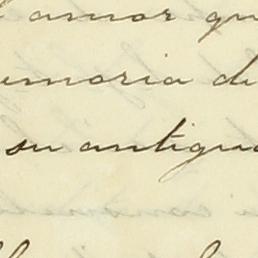 amor qu
emoria de
su antigua